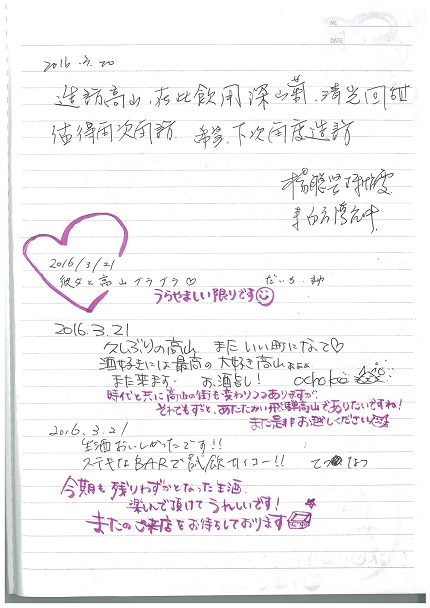 No.
DATE
2016.3.20
造訪高山,在此飲用深山菊,清光回甜
值得再次再訪 希望下次再度造訪
來自台灣台中
2016/3/21
彼女と高山ブラブラ♡
うらやましい限りです
2016.3.21
久しぶりの高山 またいい町になって♡
酒好きには最高の大好き高山
また来ます。 お酒よし! ochoko
時代と共に高山の街も変わりつつありますが
それでもずっと、あたたかい飛騨高山でありたいですね!
また是非お越しください
2016.3.21
生酒おいしかったです!!
ステキなBARで試飲サイコー!!
今期も残りわずかとなった生酒
楽しんで頂けてうれしいです!
またのご来店をお待ちしております